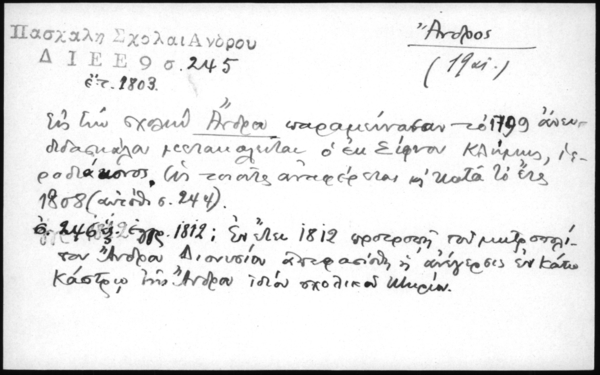 Πασχάλη Σχολαι Ανδρου
ΔΙΕΕ 9 σ. 245
ἔτ. 1803.
Ἄνδρος
(19 αἰ.)
Εἰς τὴν σχολὴν Ἄνδρου παραμείνασαν τὸ 1799 ἄνευ
διδασκάλου μετακαλεῖται ὁ ἐκ Σίφνου Κλήμης, ἱε-
ροδιάκονος. Ὡς τοιοῦτος ἀναφέρεται κ' κατὰ τὸ ἔτος
1808 (αὐτόθι σ. 244).
σ. 246 ἔγγρ. 1812; Ἐν ἔτει 1812 προτροπῇ τοῦ μητροπολί-
του Ἄνδρου Διονυσίου ἀπεφασίσθη ἡ ἀνέγερσις ἐν Κάτω
Κάστρῳ τῆς Ἄνδρου ἰδίου σχολικοῦ κτιρίου.